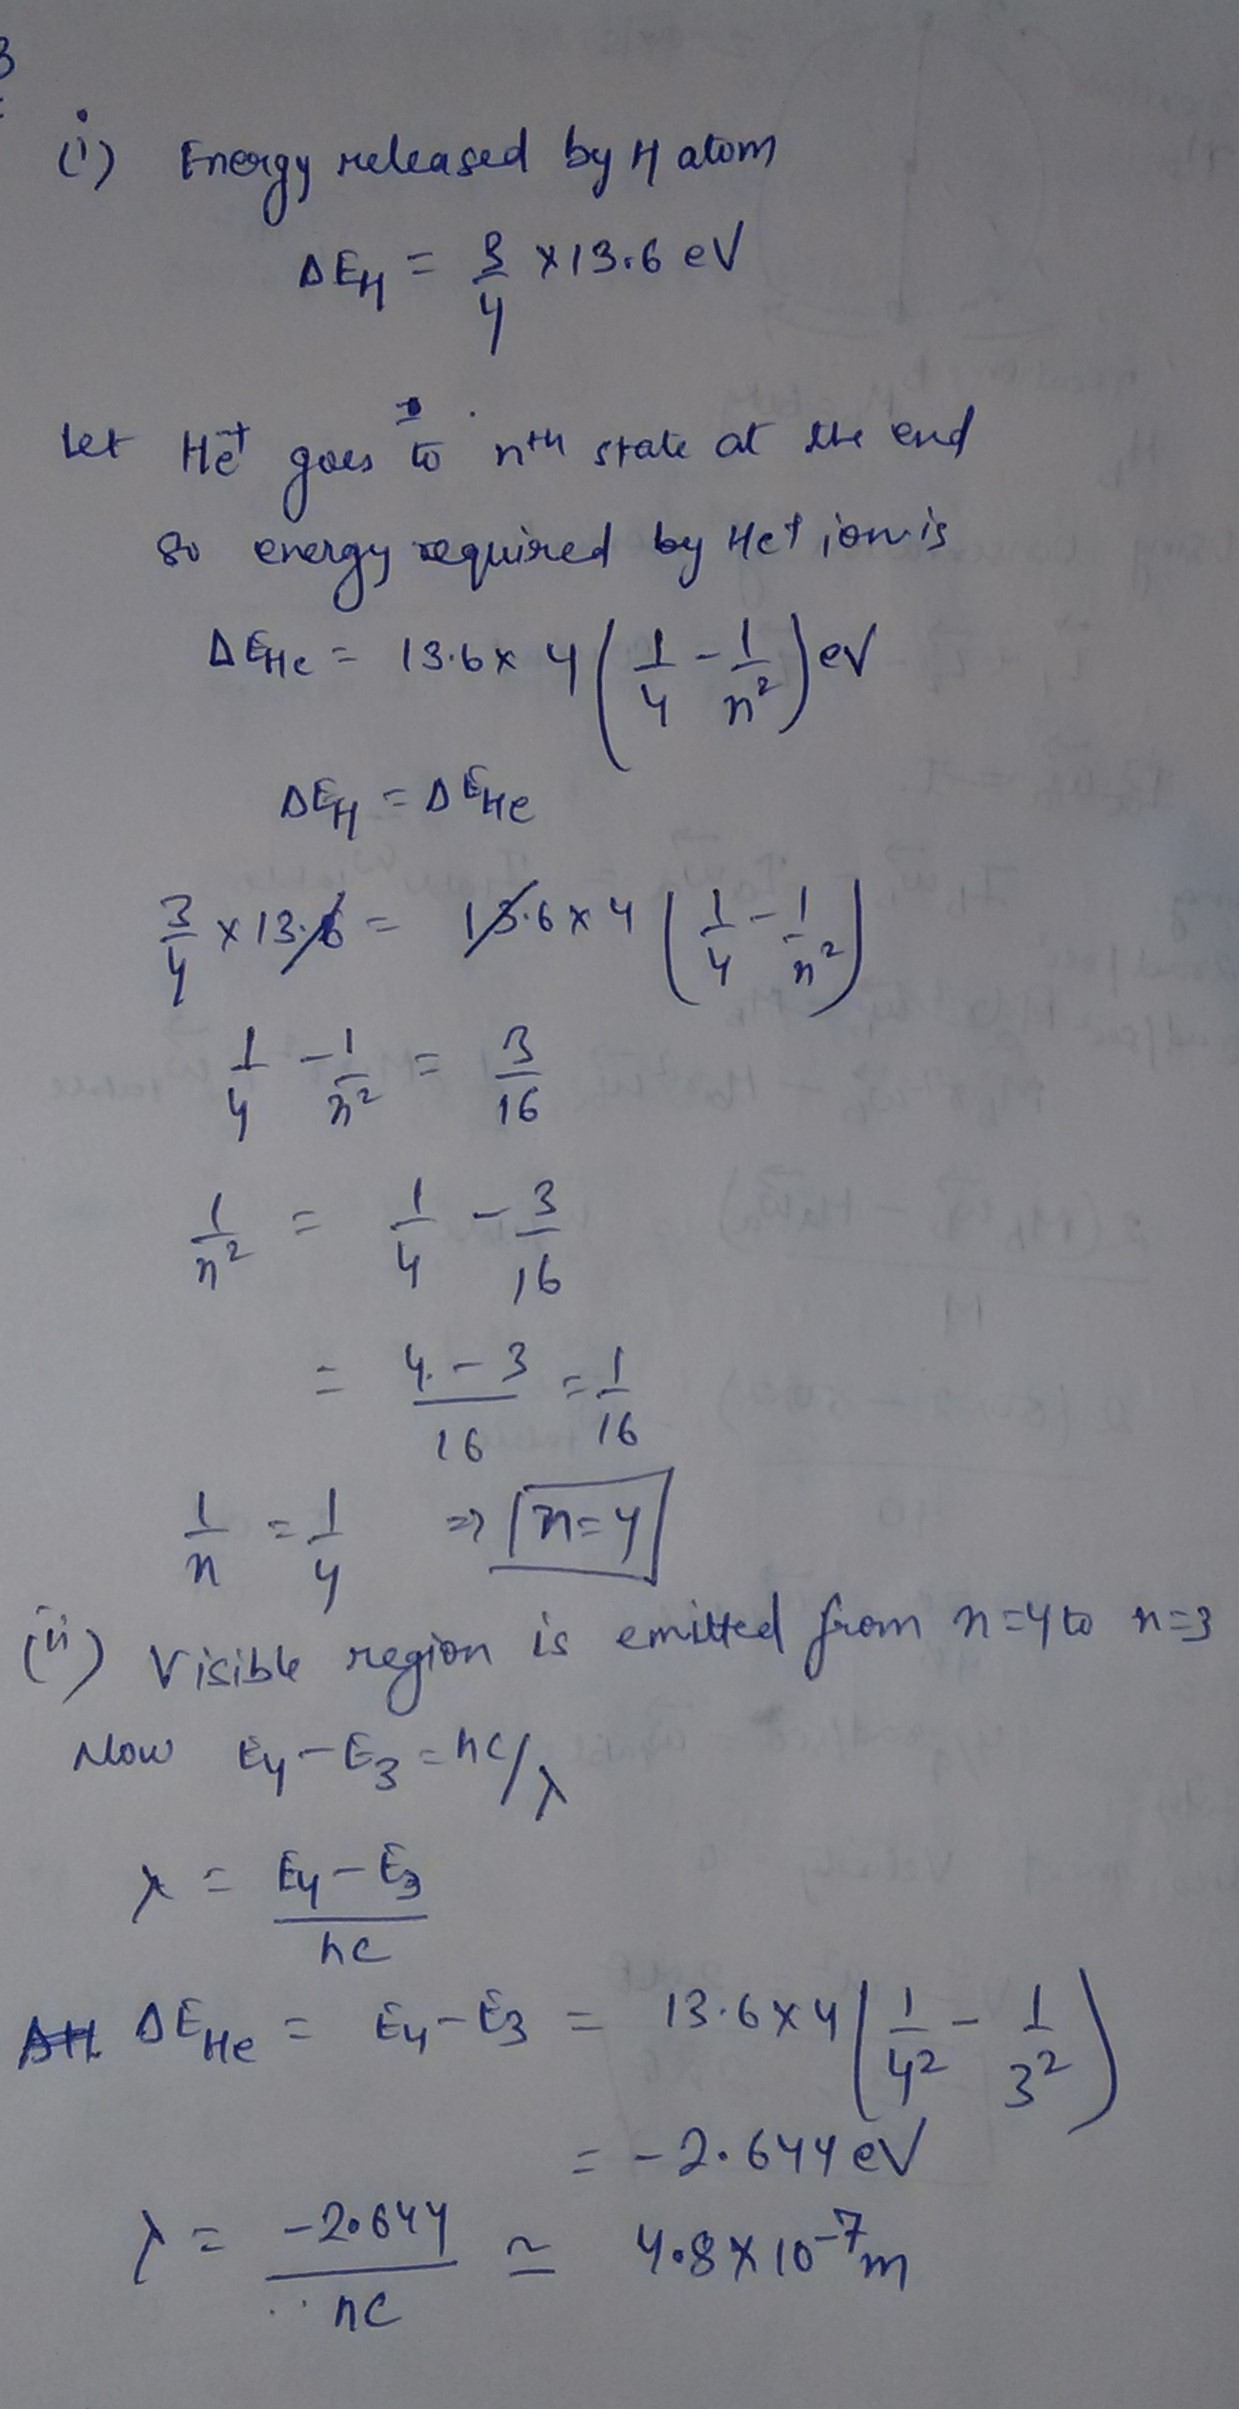 3
(i) Energy released by H atom
ΔE_H = 3/4 × 13.6 eV
Let He⁺ goes to nᵗʰ state at the end
So energy required by He⁺ ion is
ΔE_He = 13.6 × 4 (1/4 - 1/n²) eV
ΔE_H = ΔE_He
3/4 × 13.6 = 13.6 × 4 (1/4 - 1/n²)
1/4 - 1/n² = 3/16
1/n² = 1/4 - 3/16
= (4 - 3)/16 = 1/16
1/n = 1/4 ⇒ n=4
(ii) Visible region is emitted from n=4 to n=3
Now E₄ - E₃ = hc/λ
λ = (E₄ - E₃)/hc
ΔE_He = E₄ - E₃ = 13.6 × 4 (1/4² - 1/3²)
= -2.644 eV
λ = -2.644/hc ≃ 4.8 × 10⁻⁷ m